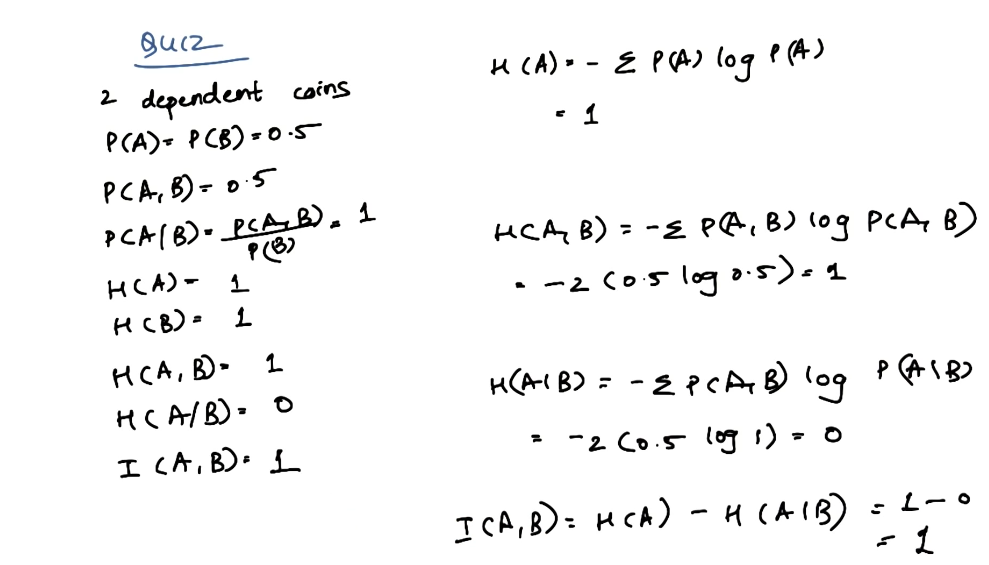 QUIZ
2 dependent coins
P(A) = P(B) = 0.5
P(A, B) = 0.5
P(A|B) = P(A, B) / P(B) = 1
H(A) = 1
H(B) = 1
H(A, B) = 1
H(A/B) = 0
I(A, B) = 1
H(A) = - Σ P(A) log P(A)
= 1
H(A, B) = - Σ P(A, B) log P(A, B)
= -2 (0.5 log 0.5) = 1
H(A|B) = - Σ P(A, B) log P(A|B)
= -2 (0.5 log 1) = 0
I(A, B) = H(A) - H(A|B) = 1 - 0
= 1